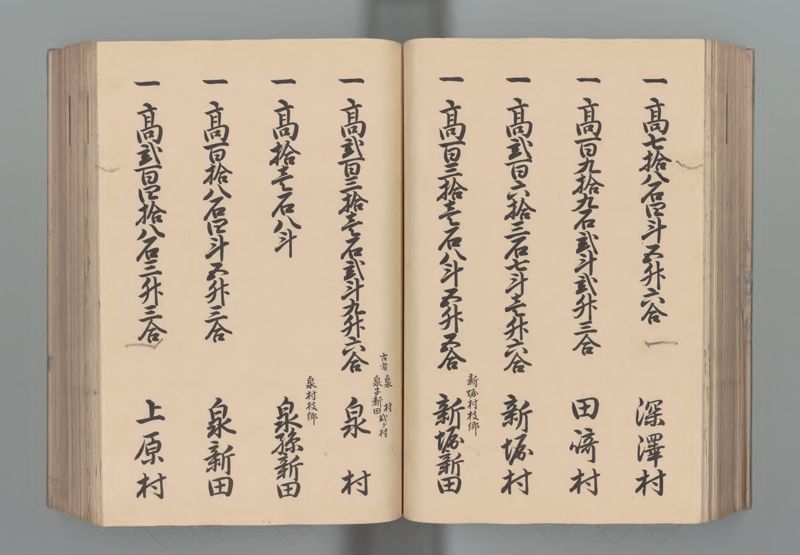 一 高七拾八石四斗五升六合
深澤村
一 高百九拾九石弐斗弐升三合
田﨑村
一 高弐百六拾三石七斗壱升六合
新堀村
一 高百三拾壱石八斗五升五合
新堀村枝郷
新堀新田
一 高弐百三拾壱石弐斗九升六合
古者 泉村
泉子新田 弐ヶ村
泉 村
一 高拾壱石八斗
泉村枝郷
泉孫新田
一 高百拾八石四斗五升三合
泉新田
一 高弐百四拾八石三升三合
上原村